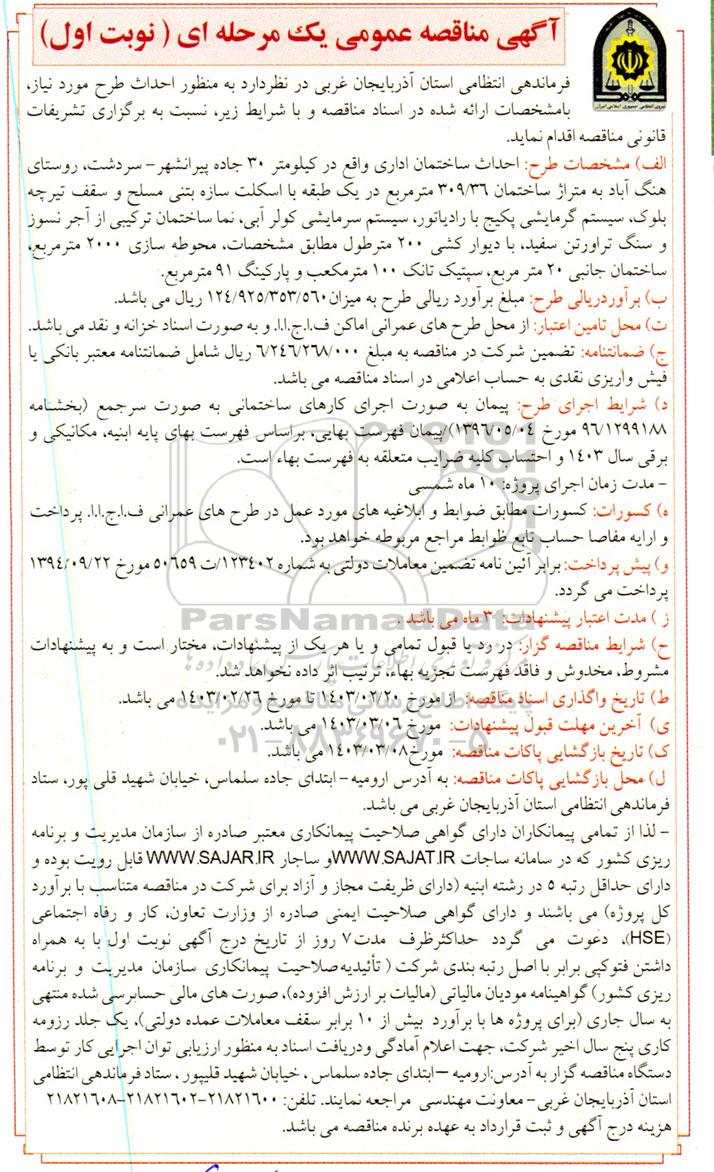 آگهی مناقصه عمومی یک مرحله ای ( نوبت اول)
فرماندهی انتظامی استان آذربایجان غربی در نظردارد به منظور احداث طرح مورد نیاز،
بامشخصات ارائه شده در اسناد مناقصه و با شرایط زیر، نسبت به برگزاری تشریفات
قانونی مناقصه اقدام نماید.
الف) مشخصات طرح: احداث ساختمان اداری واقع در کیلومتر ۳۰ جاده پیرانشهر- سردشت، روستای
هنگ آباد به متراژ ساختمان ۳۰۹/۳۶ مترمربع در یک طبقه با اسکلت سازه بتنی مسلح و سقف تیرچه
بلوک، سیستم گرمایشی پکیج با رادیاتور، سیستم سرمایشی کولر آبی، نما ساختمان ترکیبی از آجر نسوز
و سنگ تراورتن سفید، با دیوار کشی ۲۰۰ مترطول مطابق مشخصات، محوطه سازی ۲۰۰۰ مترمربع،
ساختمان جانبی ۲۰ متر مربع، سپتیک تانک ۱۰۰ مترمکعب و پارکینگ ۹۱ مترمربع.
ب) برآوردریالی طرح: مبلغ برآورد ریالی طرح به میزان۱۲۴/۹۲۵/۳۵۳/۵۶۰ ریال می باشد.
ت) محل تامین اعتبار: از محل طرح های عمرانی اماکن ف.ا.ج.ا.ا. و به صورت اسناد خزانه و نقد می باشد.
ج) ضمانتنامه: تضمین شرکت در مناقصه به مبلغ ۶/۲۴۶/۲۶۸/۰۰۰ ریال شامل ضمانتنامه معتبر بانکی یا
فیش واریزی نقدی به حساب اعلامی در اسناد مناقصه می باشد.
د) شرایط اجرای طرح: پیمان به صورت اجرای کارهای ساختمانی به صورت سرجمع (بخشنامه
۹۶/۱۲۹۹۱۸۸ مورخ ۱۳۹۶/۰۵/۰۴) پیمان فهرست بهایی، براساس فهرست بهای پایه ابنیه، مکانیکی و
برقی سال ۱۴۰۳ و احتساب کلیه ضرایب متعلقه به فهرست بهاء است.
- مدت زمان اجرای پروژه: ۱۰ ماه شمسی
ه) کسورات: کسورات مطابق ضوابط و ابلاغیه های مورد عمل در طرح های عمرانی ف.ا.ج.ا.ا. پرداخت
و ارایه مفاصا حساب تابع ظوابط مراجع مربوطه خواهد بود.
و) پیش پرداخت: برابر آئین نامه تضمین معاملات دولتی به شماره ۱۲۳۴۰۲/ت ۵۰۶۵۹ مورخ ۱۳۹۴/۰۹/۲۲
پرداخت می گردد.
ز ) مدت اعتبار پیشنهادات: ۳ ماه می باشد .
ح) شرایط مناقصه گزار: در رد یا قبول تمامی و یا هر یک از پیشنهادات، مختار است و به پیشنهادات
مشروط، مخدوش و فاقد فهرست تجزیه بهاء، ترتیب اثر داده نخواهد شد.
ط) تاریخ واگذاری اسناد مناقصه: از مورخ ۱۴۰۳/۰۲/۲۰ تا مورخ ۱۴۰۳/۰۲/۲۶ می باشد.
ی) آخرین مهلت قبول پیشنهادات: مورخ ۱۴۰۳/۰۳/۰۶ می باشد.
ک) تاریخ بازگشایی پاکات مناقصه: مورخ۱۴۰۳/۰۳/۰۸ می باشد.
ل) محل بازگشایی پاکات مناقصه: به آدرس ارومیه- ابتدای جاده سلماس، خیابان شهید قلی پور، ستاد
فرماندهی انتظامی استان آذربایجان غربی می باشد.
- لذا از تمامی پیمانکاران دارای گواهی صلاحیت پیمانکاری معتبر صادره از سازمان مدیریت و برنامه
ریزی کشور که در سامانه ساجات WWW.SAJAT.IR و ساجار WWW.SAJAR.IR قابل رویت بوده و
دارای حداقل رتبه ۵ در رشته ابنیه (دارای ظریفت مجاز و آزاد برای شرکت در مناقصه متناسب با برآورد
کل پروژه) می باشند و دارای گواهی صلاحیت ایمنی صادره از وزارت تعاون، کار و رفاه اجتماعی
(HSE)، دعوت می گردد حداکثرظرف مدت۷ روز از تاریخ درج آگهی نوبت اول با به همراه
داشتن فتوکپی برابر با اصل رتبه بندی شرکت ( تأئیدیه‌صلاحیت پیمانکاری سازمان مدیریت و برنامه
ریزی کشور) گواهینامه مودیان مالیاتی (مالیات بر ارزش افزوده)، صورت های مالی حسابرسی شده منتهی
به سال جاری (برای پروژه ها با برآورد بیش از ۱۰ برابر سقف معاملات عمده دولتی)، یک جلد رزومه
کاری پنج سال اخیر شرکت، جهت اعلام آمادگی ودریافت اسناد به منظور ارزیابی توان اجرایی کار توسط
دستگاه مناقصه گزار به آدرس:ارومیه –ابتدای جاده سلماس ، خیابان شهید قلیپور ، ستاد فرماندهی انتظامی
استان آذربایجان غربی- معاونت مهندسی مراجعه نمایند. تلفن: ۲۱۸۲۱۶۰۰-۲۱۸۲۱۶۰۲-۲۱۸۲۱۶۰۸
هزینه درج آگهی و ثبت قرارداد به عهده برنده مناقصه می باشد.
ParsNamadData
پایگاه اطلاع رسانی مناقصه و مزایده
۰۲۱-۸۸۳۴۹۶۷۰-۵